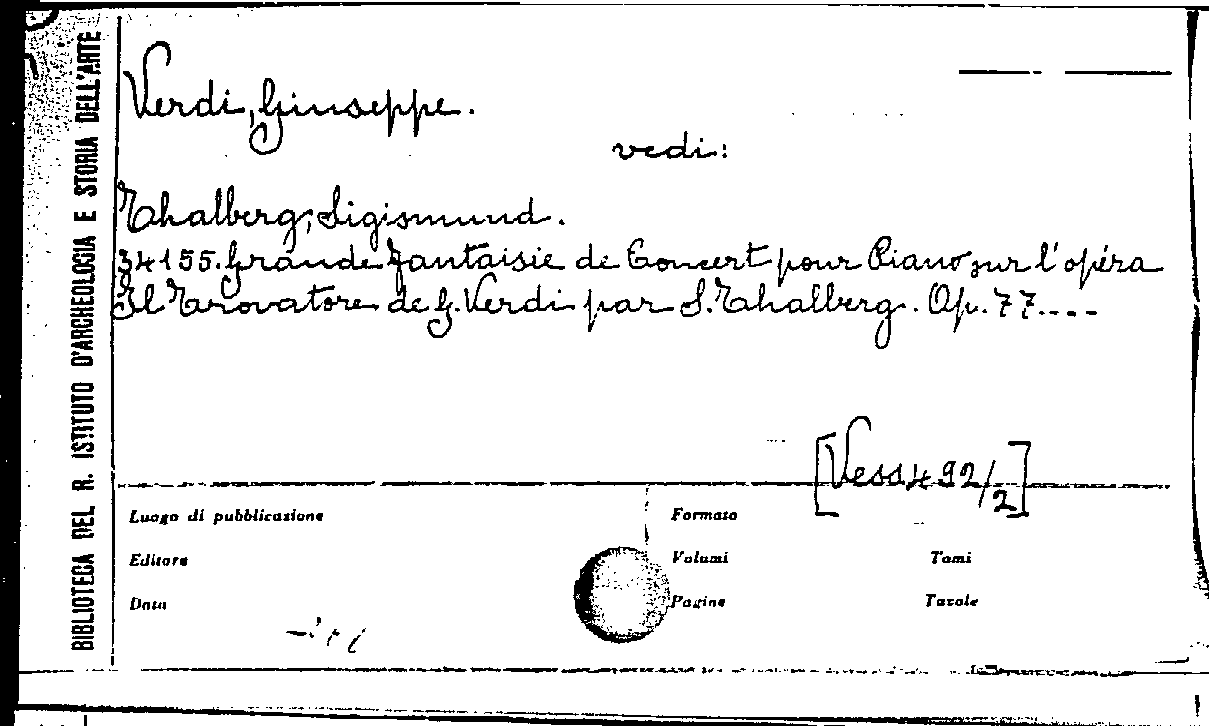 BIBLIOTECA DEL R. ISTITUTO D'ARCHEOLOGIA E STORIA DELL'ARTE
Verdi, Giuseppe.
vedi:
Thalberg, Sigismund.
34155. Grande fantaisie de Concert pour Piano sur l'opéra
Il Trovatore de G. Verdi par S. Thalberg. Op. 77....
[Vess 492/2]
Luogo di pubblicazione
Formato
Editore
Volumi
Tomi
Data
Pagine
Tavole